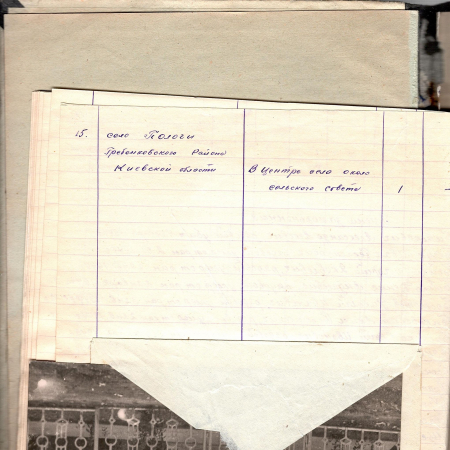 15. село Пологи
Гребенковского Района
Киевской области
В Центре села около
сельского совета
1